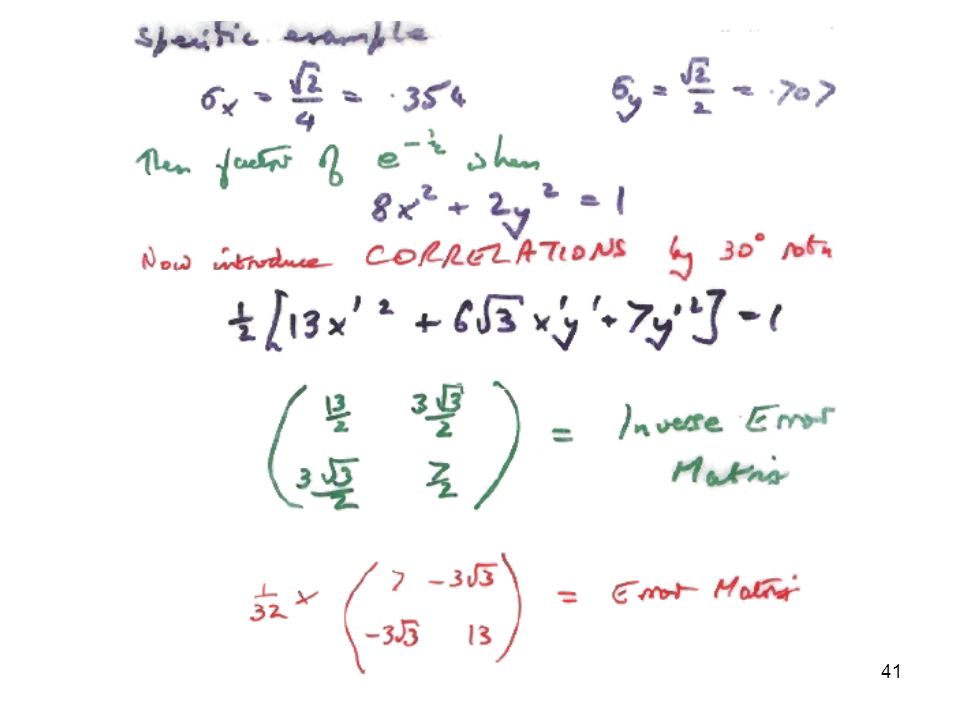 Specific example
σx = √2/4 = .354 σy = √2/2 = .707
Then factor of e^-½ when
8x² + 2y² = 1
Now introduce CORRELATIONS by 30° rotn
½[13x'² + 6√3 x'y' + 7y'²] = 1
(13/2 3√3/2
3√3/2 7/2) = Inverse Error Matrix
1/32 × (7 -3√3
-3√3 13) = Error Matrix
41